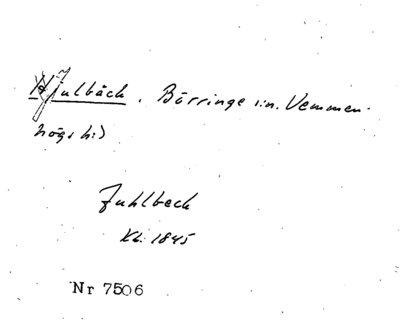 Julbäck, Börringe s:n. Vemmen-
högs h:d
Juhlbeck
Kb: 1845
Nr 7506